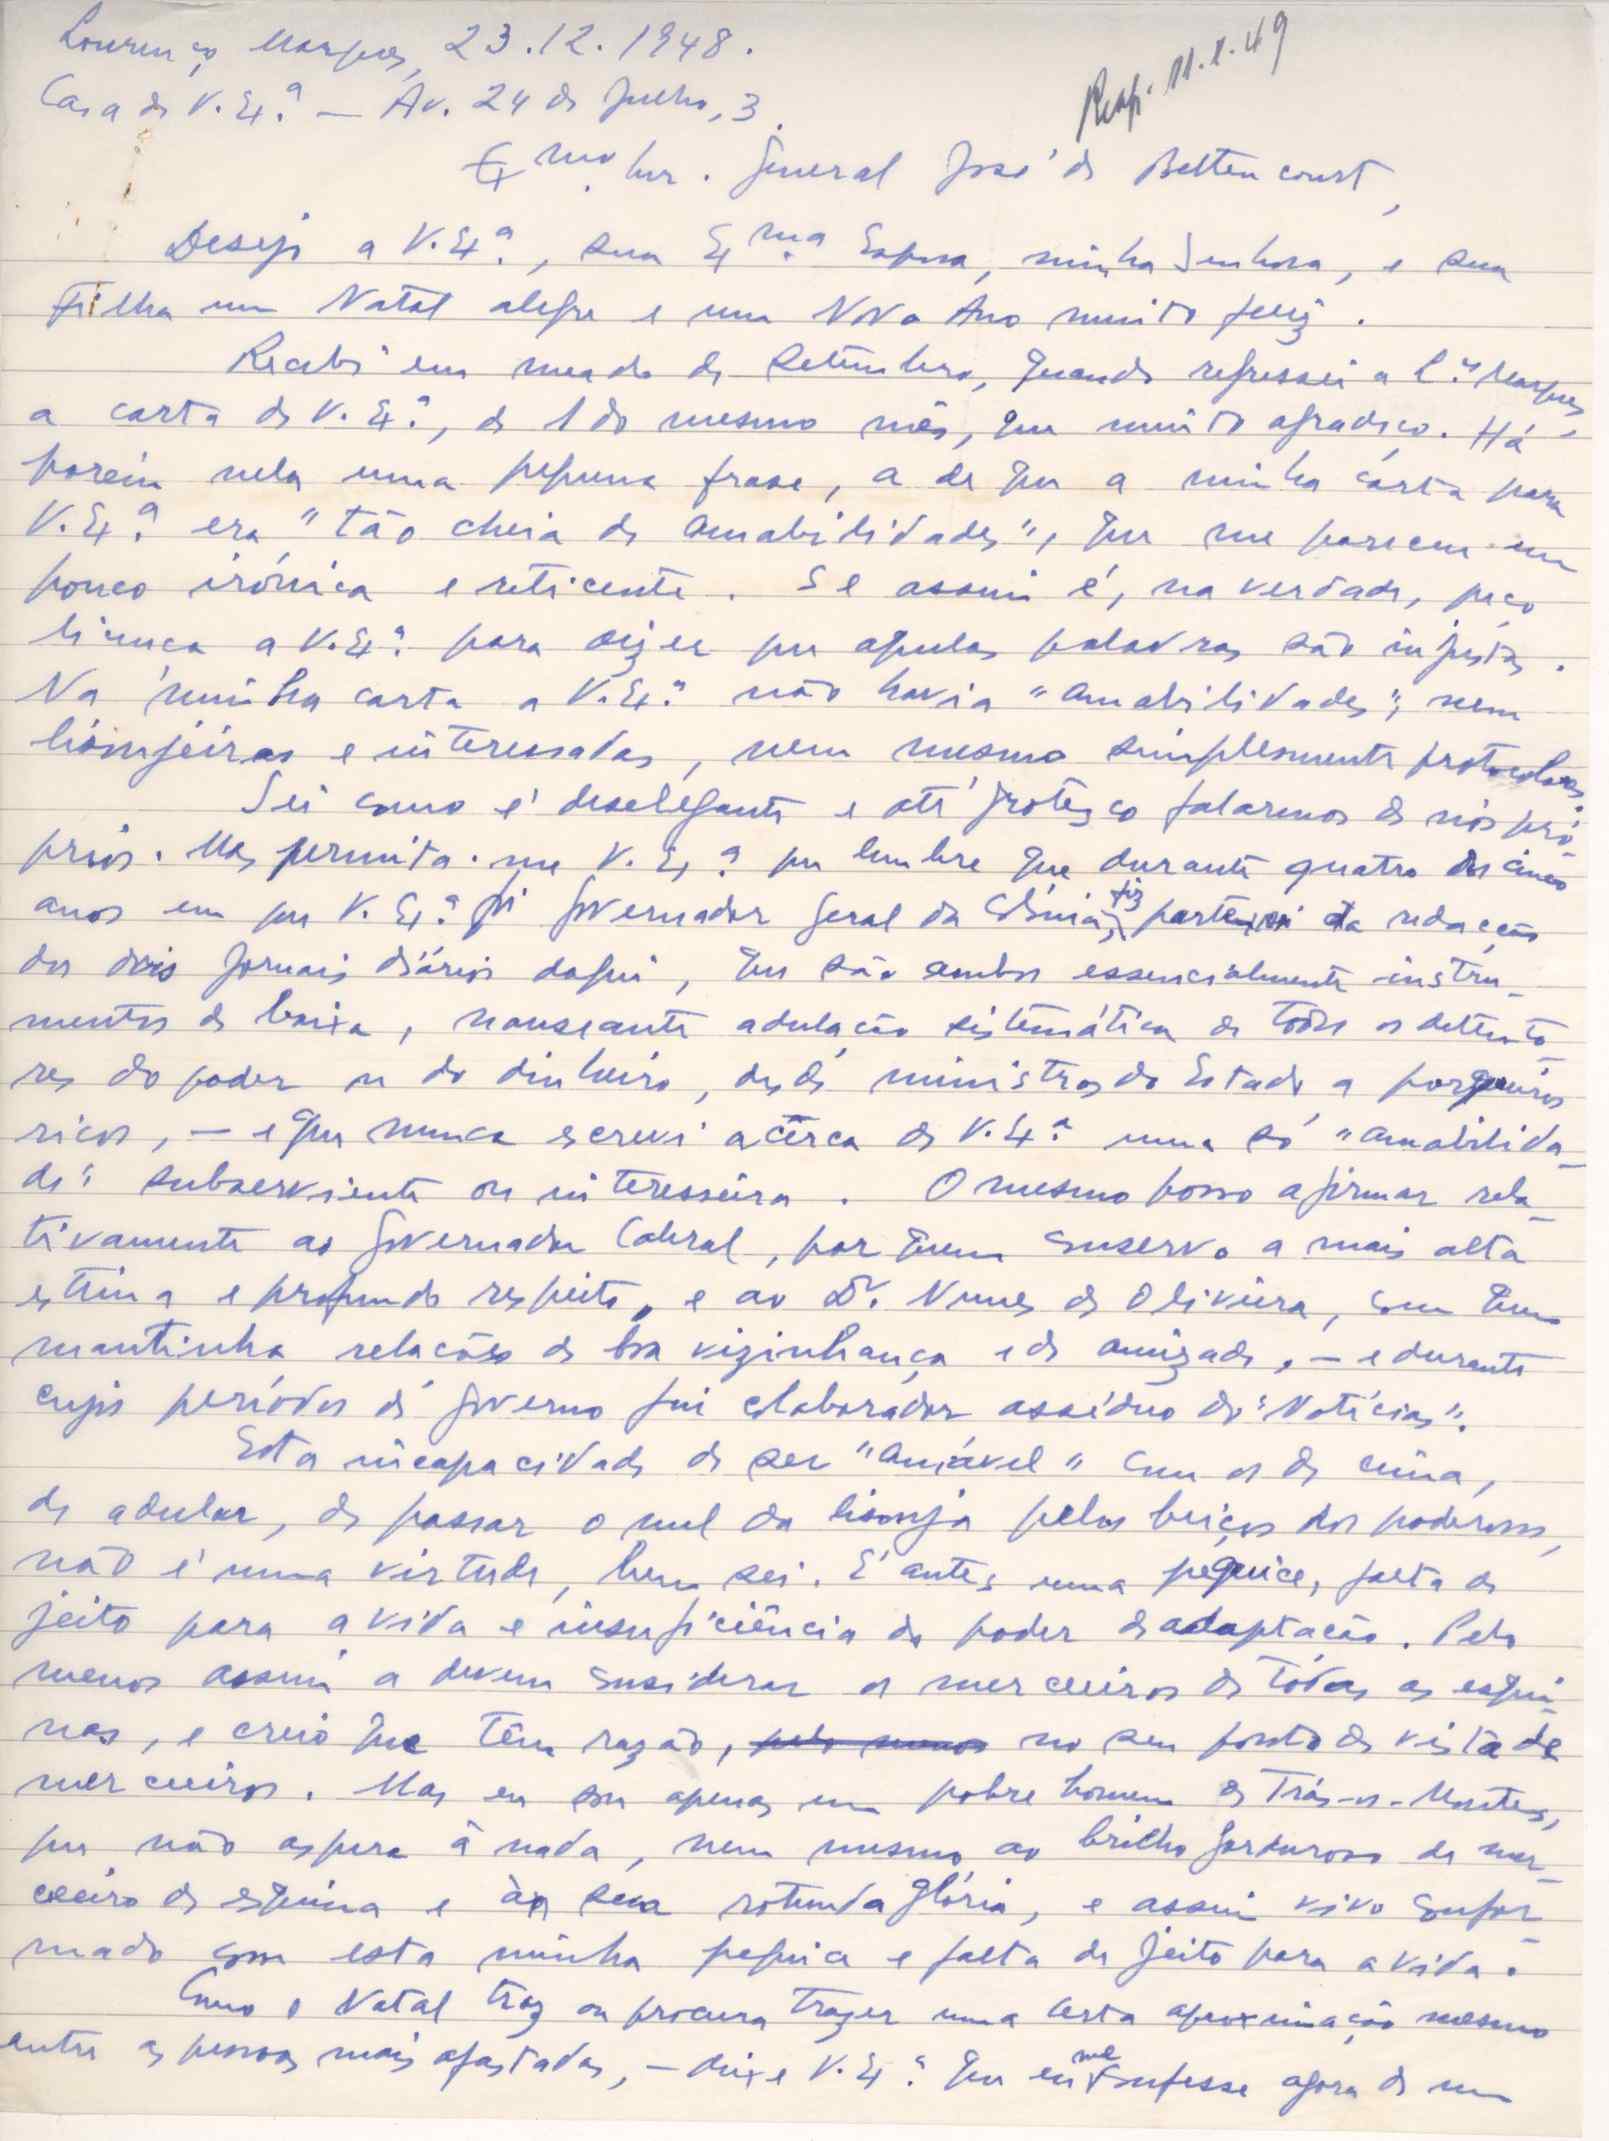 Lourenço Marques, 23.12.1948.
Resp. 11.1.49
Casa de V. Exª. — Av. 24 de Julho, 3.
Exmo. Snr. General José de Bettencourt,
Desejo a V. Exª., sua Exma. Esposa, minha Senhora, e sua
Filha um Natal alegre e um Novo Ano muito feliz.
Recebi em meado de Setembro, quando regressei a L.ço Marques,
a carta de V. Exª., de 1 do mesmo mês, que muito agradeço. Há
porém nela uma pequena frase, a de que a minha carta para
V. Exª. era "tão cheia de amabilidades", que me pareceu um
pouco irónica e reticente. Se assim é, na verdade, peço
licença a V. Exª. para dizer que aquelas palavras são injustas.
Na minha carta a V. Exª. não havia "amabilidades", nem
lisonjeiras e interessadas, nem mesmo simplesmente protocolares.
Sei como é deselegante e até grotesco falarmos de nós pró-
prios. Mas permita-me V. Exª. que lembre que durante quatro dos cinco
anos em que V. Exª. foi Governador Geral da Colónia, fiz parte da redacção
dos dois jornais diários daqui, que são ambos essencialmente instru-
mentos de baixa, nauseante adulação sistemática de todos os detento-
res do poder ou do dinheiro, desde ministros do Estado a porqueiros
ricos, — e que nunca escrevi acêrca de V. Exª. uma só "amabilida-
de" subserviente ou interesseira. O mesmo posso afirmar rela-
tivamente ao Governador Cabral, por quem conservo a mais alta
estima e profundo respeito, e ao Dr. Nunes de Oliveira, com quem
mantinha relações de boa vizinhança e de amizade, — e durante
cujos períodos de governo fui colaborador assíduo do "Notícias".
Esta incapacidade de ser "amável" com os de cima,
de adular, de passar o mel da lisonja pelos beiços dos poderosos,
não é uma virtude, bem sei. É antes uma pequice, falta de
jeito para a vida e insuficiência do poder de adaptação. Pelo
menos assim a devem considerar os merceeiros de tôdas as esqui-
nas, e creio que têm razão, pelo menos no seu ponto de vista de
merceeiros. Mas eu sou apenas um pobre homem de Trás-os-Montes,
que não aspira a nada, nem mesmo ao brilho gorduroso de mer-
ceeiro de esquina e à sua rotunda glória, e assim vivo confor-
mado com esta minha pequice e falta de jeito para a vida.
Como o Natal traz ou procura trazer uma certa aproximação mesmo
entre as pessoas mais afastadas, — deixe V. Exª. que eu me confesse agora de um